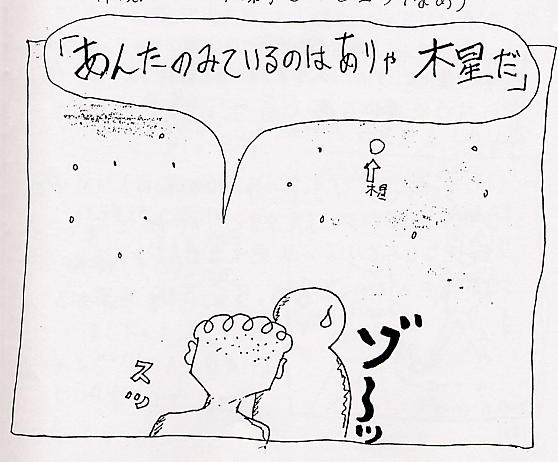 「あんたのみているのはありゃ 木星だ」
木星
スッ
ゾ〜ッ